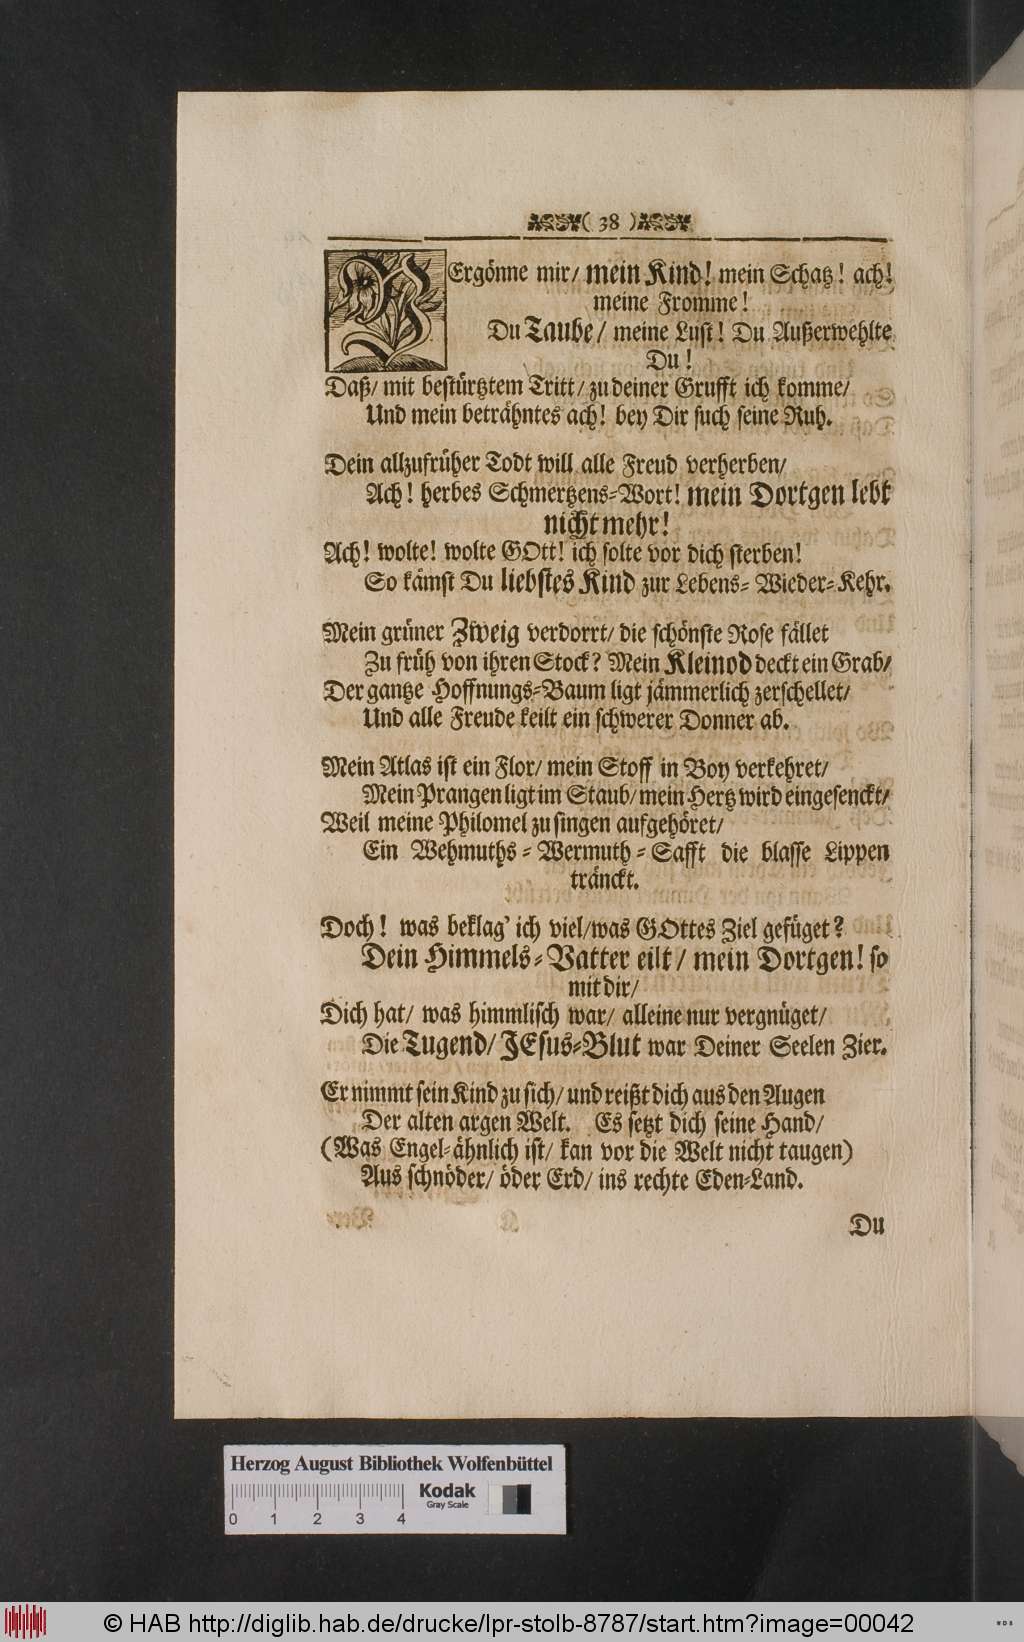 ( 38 )
VErgönne mir/ mein Kind! mein Schatz! ach!
meine Fromme!
Du Taube/ meine Lust! Du Außerwehlte
Du!
Daß/ mit bestürtztem Tritt/ zu deiner Grufft ich komme/
Und mein beträhntes ach! bey Dir such seine Ruh.
Dein allzufrüher Todt will alle Freud verherben/
Ach! herbes Schmertzens-Wort! mein Dortgen lebt
nicht mehr!
Ach! wolte! wolte GOtt! ich solte vor dich sterben!
So kämst Du liebstes Kind zur Lebens-Wieder-Kehr.
Mein grüner Zweig verdorrt/ die schönste Rose fället
Zu früh von ihren Stock? Mein Kleinod deckt ein Grab/
Der gantze Hoffnungs-Baum ligt jämmerlich zerschellet/
Und alle Freude keilt ein schwerer Donner ab.
Mein Atlas ist ein Flor/ mein Stoff in Boy verkehret/
Mein Prangen ligt im Staub/ mein Hertz wird eingesenckt/
Weil meine Philomel zu singen aufgehöret/
Ein Wehmuths-Wermuth-Safft die blasse Lippen
tränckt.
Doch! was beklag' ich viel/ was GOttes Ziel gefüget?
Dein Himmels-Vatter eilt/ mein Dortgen! so
mit dir/
Dich hat/ was himmlisch war/ alleine nur vergnüget/
Die Tugend/ JEsus-Blut war Deiner Seelen Zier.
Er nimmt sein Kind zu sich/ und reißt dich aus den Augen
Der alten argen Welt. Es setzt dich seine Hand/
(Was Engel-ähnlich ist/ kan vor die Welt nicht taugen)
Aus schnöder/ öder Erd/ ins rechte Eden-Land.
Du
Herzog August Bibliothek Wolfenbüttel
Kodak
Gray Scale
0 1 2 3 4
© HAB http://diglib.hab.de/drucke/lpr-stolb-8787/start.htm?image=00042